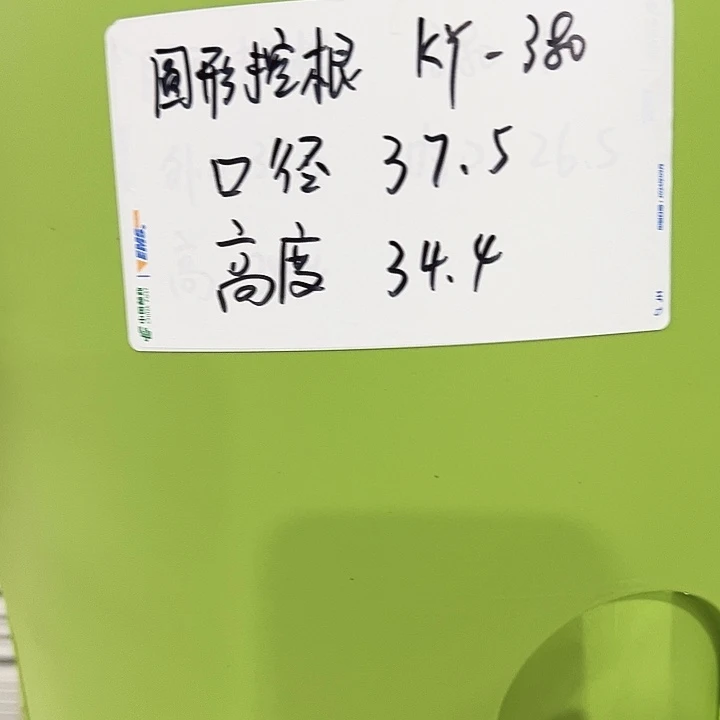 圆形控根 KY-380
口径 37.5
高度 34.4
EMS